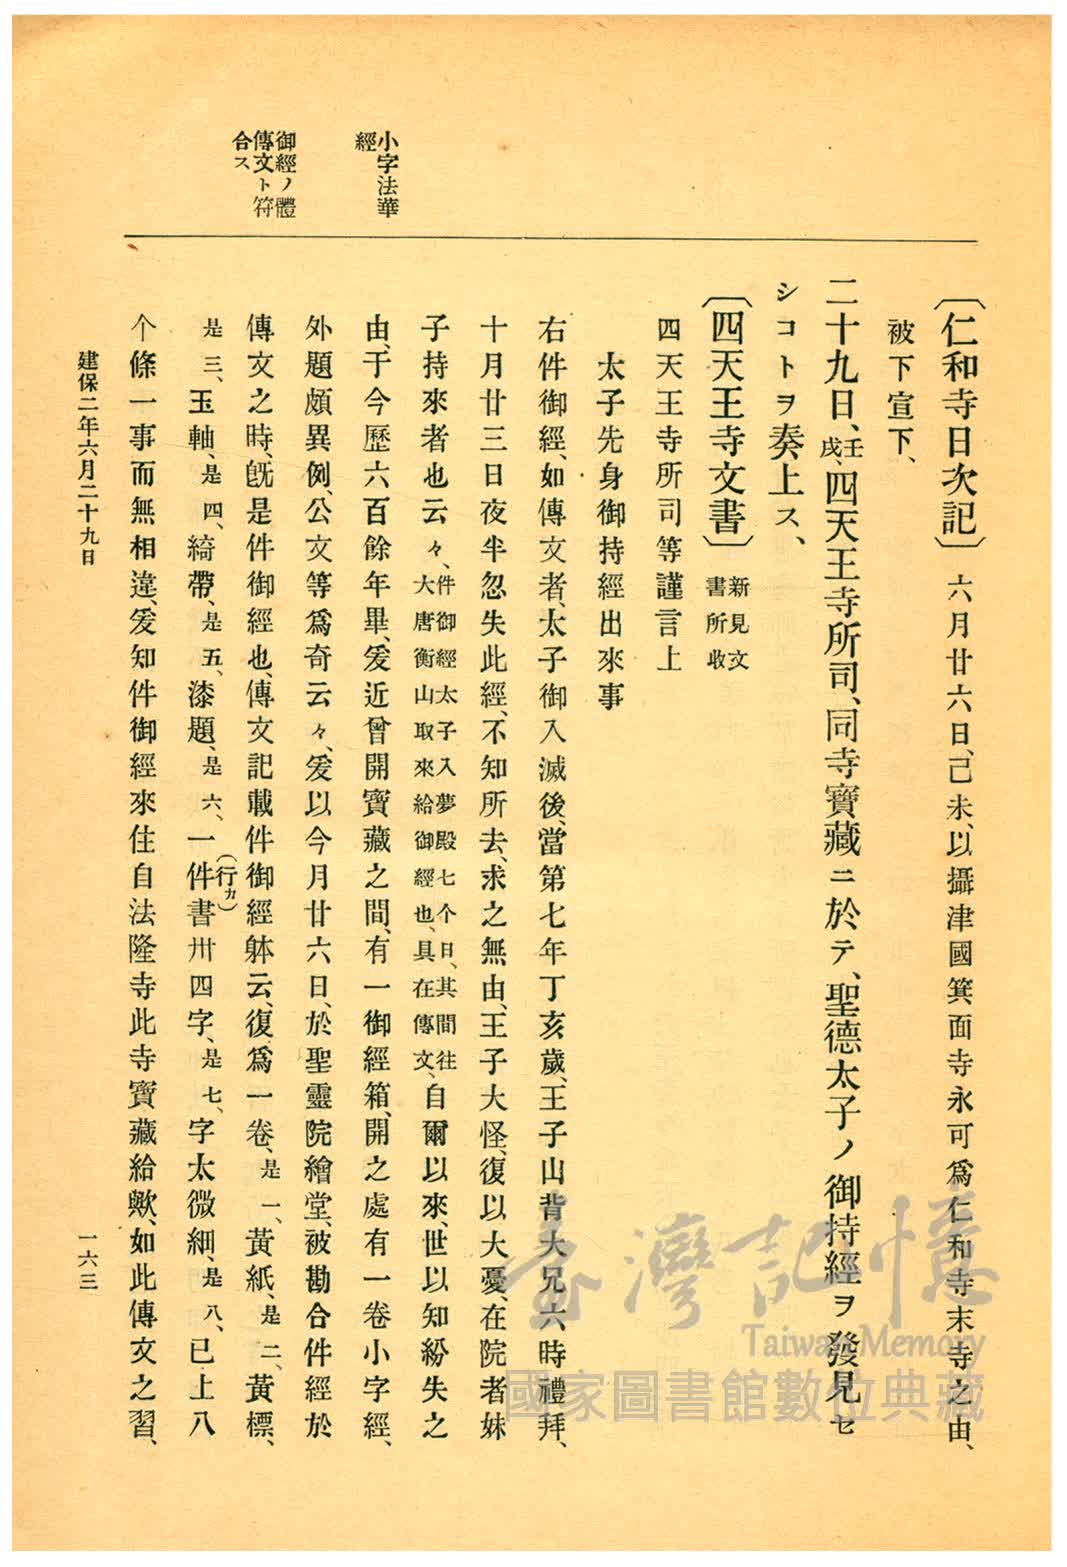 小字法華
經
御經ノ體
傳文ト符
合ス
〔仁和寺日次記〕六月廿六日、己未、以攝津國箕面寺永可爲仁和寺末寺之由、
被下宣下、
二十九日、壬戌、四天王寺所司、同寺寶藏ニ於テ、聖德太子ノ御持經ヲ發見セ
シコトヲ奏上ス、
〔四天王寺文書〕新見文書所收
四天王寺所司等謹言上
太子先身御持經出來事
右件御經、如傳文者、太子御入滅後、當第七年丁亥歲、王子山背大兄六時禮拜、
十月廿三日夜半忽失此經、不知所去、求之無由、王子大怪、復以大憂、在院者妹
子持來者也云々、件御經太子入夢殿七个日、其間往大唐衡山取來給御經也、具在傳文、自爾以來、世以知紛失之
由、于今歷六百餘年畢、爰近曾開寶藏之間、有一御經箱、開之處有一卷小字經、
外題頗異例、公文等爲奇云々、爰以今月廿六日、於聖靈院繪堂、被勘合件經於
傳文之時、旣是件御經也、傳文記載件御經躰云、復爲一卷、是一、黃紙、是二、黃標、
是三、玉軸、是四、綺帶、是五、漆題、是六、一件(行カ)書卅四字、是七、字太微細、是八、已上八
个條一事而無相違、爰知件御經來住自法隆寺此寺寶藏給歟、如此傳文之習、
建保二年六月二十九日
一六三
臺灣記憶
Taiwan Memory
國家圖書館數位典藏